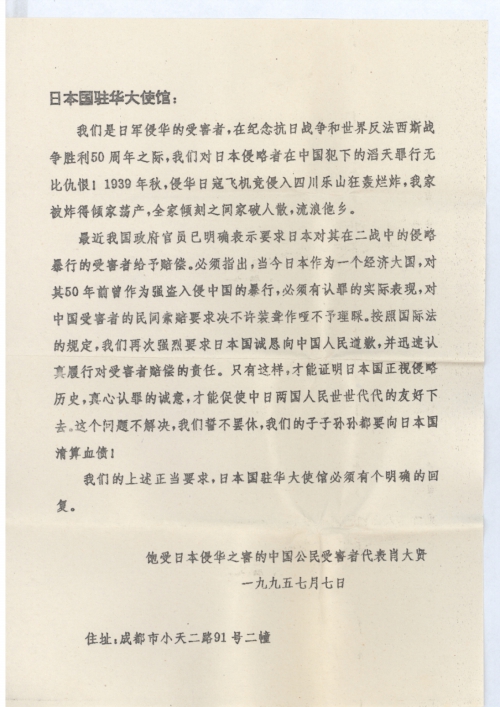 日本国驻华大使馆：
我们是日军侵华的受害者，在纪念抗日战争和世界反法西斯战
争胜利50周年之际，我们对日本侵略者在中国犯下的滔天罪行无
比仇恨！1939年秋，侵华日寇飞机竟侵入四川乐山狂轰烂炸，我家
被炸得倾家荡产，全家倾刻之间家破人散，流浪他乡。
最近我国政府官员已明确表示要求日本对其在二战中的侵略
暴行的受害者给予赔偿。必须指出，当今日本作为一个经济大国，对
其50年前曾作为强盗入侵中国的暴行，必须有认罪的实际表现，对
中国受害者的民间索赔要求决不许装聋作哑不予理睬。按照国际法
的规定，我们再次强烈要求日本国诚恳向中国人民道歉，并迅速认
真履行对受害者赔偿的责任。只有这样，才能证明日本国正视侵略
历史，真心认罪的诚意，才能促使中日两国人民世世代代的友好下
去。这个问题不解决，我们誓不罢休，我们的子子孙孙都要向日本国
清算血债！
我们的上述正当要求，日本国驻华大使馆必须有个明确的回
复。
饱受日本侵华之害的中国公民受害者代表肖大贤
一九九五七月七日
住址：成都市小天二路91号二幢